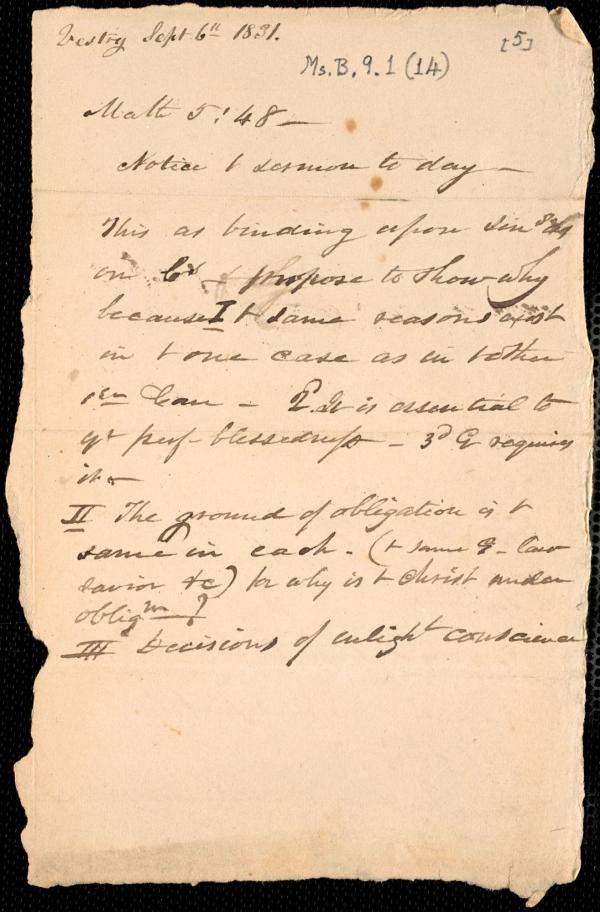 Vestry Sept. 6th 1831.
[5]
Ms. B. 9. 1 (14)
Math 5: 48 —
Notice t sermon to day —
This as binding upon sin
on — propose to show why
because I t same reasons exist
in t one case as in t other
— 2. It is essential to
yr perf- blessedness — 3d G requires
it —
II The ground of obligation is t
same in each. (t same G - law
savior &c) for why is t Christ under
obligtn — ?
III Decisions of enlight conscience